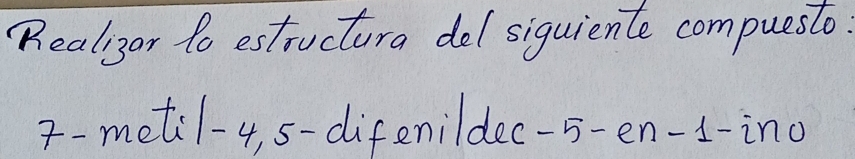 Realizar la estructura del siguiente compuesto:
7-metil-4,5-difenildec-5-en-1-ino